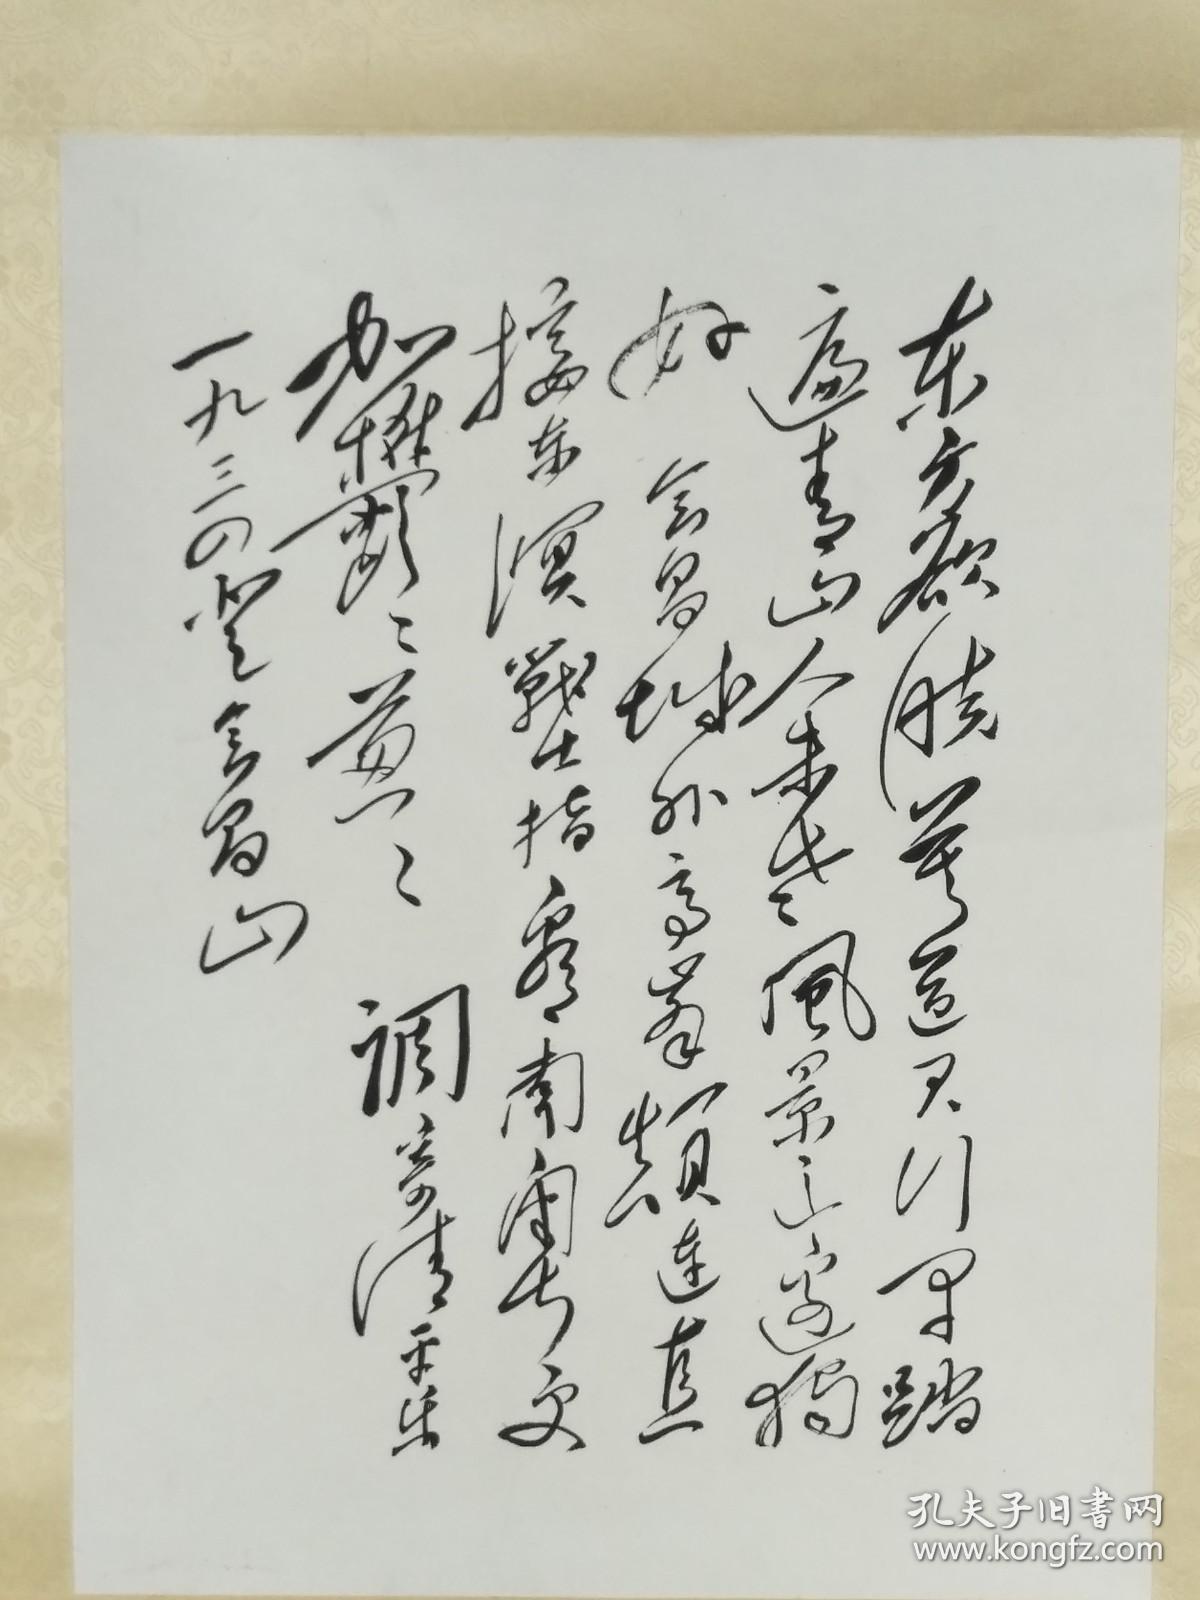 东方欲曉莫道君行早踏
遍青山人未老風景这邊獨
好 会昌城外高峯顛連直
接东溟戰士指看南粤更
加鬱〻葱〻 調寄清平乐
一九三四登会昌山
孔夫子旧書网
www.kongfz.com